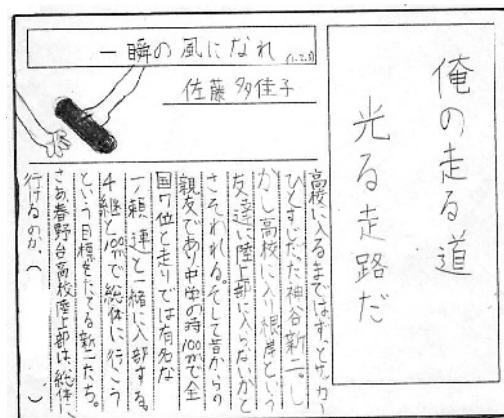 一瞬の風になれ (1.2.3)
佐藤多佳子
俺の走る道
光る走路だ
高校に入るまではずっとサッカー
ひとすじだった神谷新二。し
かし高校に入り根岸という
友達に陸上部に入らないかと
さそわれる。そして昔からの
親友であり中学の時100mで全
国7位と走りでは有名な
一ノ瀬連と一緒に入部する。
4継と100mで総体に行こう
という目標をたてる新二たち。
さあ春野台高校陸上部は、総体に
行けるのか、( )